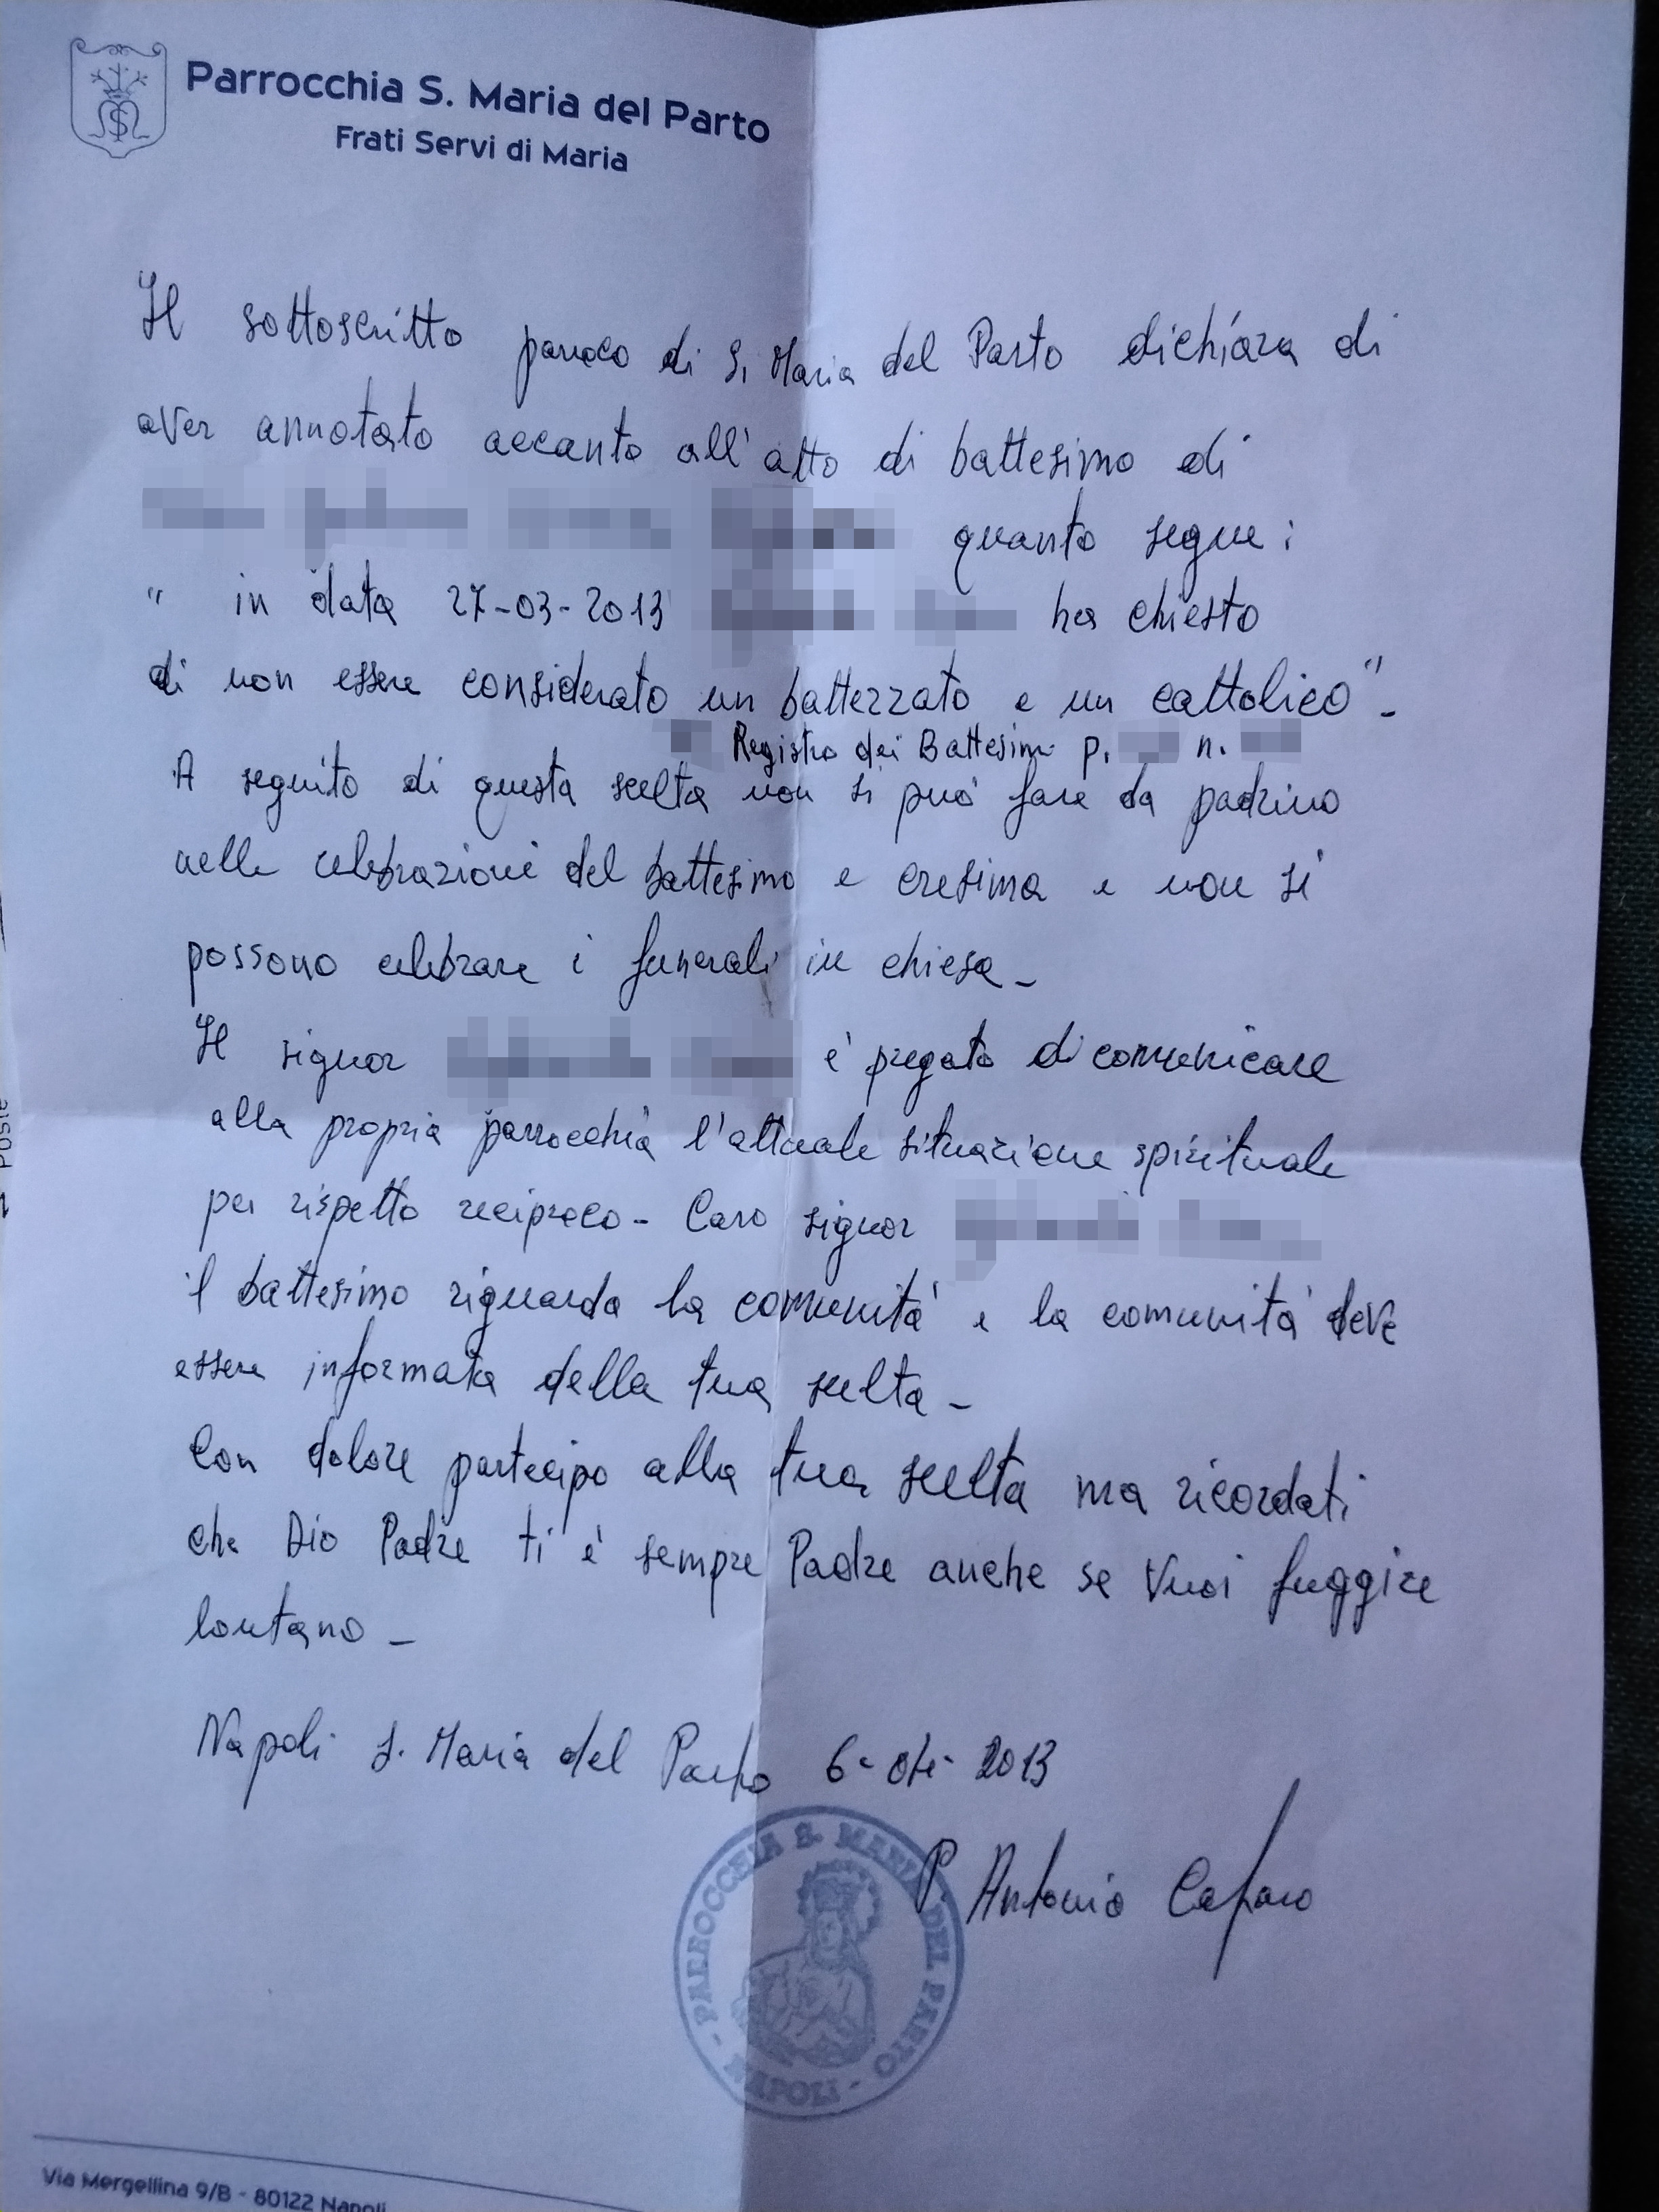 Parrocchia S. Maria del Parto
Frati Servi di Maria
Il sottoscritto parroco di S. Maria del Parto dichiara di
aver annotato accanto all'atto di battesimo di
quanto segue:
" in data 27-03-2013 ha chiesto
di non essere considerato un battezzato e un cattolico"-
Registro dei Battesimi p. n.
A seguito di questa scelta non si può fare da padrino
nelle celebrazioni del battesimo e cresima e non si
possono celebrare i funerali in chiesa-
Il signor è pregato di comunicare
alla propria parrocchia l'attuale situazione spirituale
per rispetto reciproco- Caro signor
il battesimo riguarda la comunità e la comunità deve
essere informata della tua scelta-
Con dolore partecipo alla tua scelta ma ricordati
che Dio Padre ti è sempre Padre anche se vuoi fuggire
lontano-
Napoli S. Maria del Parto 6- 2013
P. Antonio
PARROCCHIA S. MARIA DEL PARTO
- NAPOLI -
Via Mergellina 9/B - 80122 Napoli